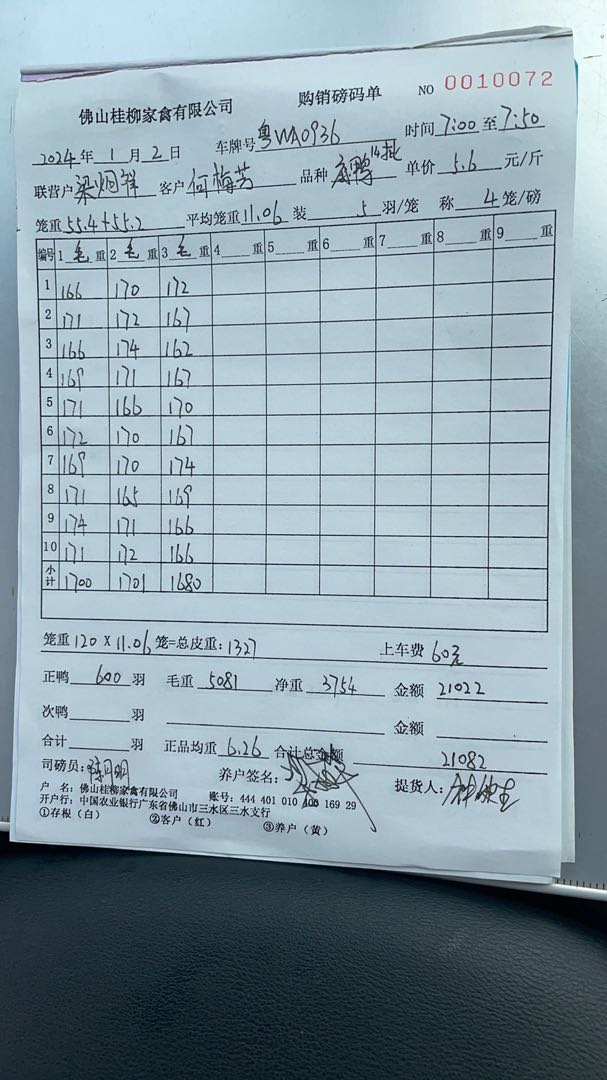 佛山桂柳家禽有限公司 购销磅码单 NO 0010072
2024年1月2日 车牌号粤WA0936 时间7:00至7:50
联营户梁炳祥 客户何梅芳 品种 鸭14批 单价5.6元/斤
笼重55.4+55.2 平均笼重11.06 装5羽/笼 称4笼/磅
编号 1毛重 2毛重 3毛重 4重 5重 6重 7重 8重 9重
1 166 170 172
2 171 172 167
3 166 174 162
4 169 171 167
5 171 166 170
6 172 170 167
7 169 170 174
8 171 165 169
9 174 171 166
10 171 172 166
小计 1700 1701 1680
笼重120×11.06笼=总皮重:1327 上车费60元
正鸭600羽 毛重5081 净重3754 金额21022
次鸭羽 金额
合计羽 正品均重6.26 合计总金额21082
司磅员: 养户签名: 提货人:
户 名:佛山桂柳家禽有限公司 账号:444 401 010 400 169 29
开户行:中国农业银行广东省佛山市三水区三水支行
①存根(白) ②客户(红) ③养户(黄)